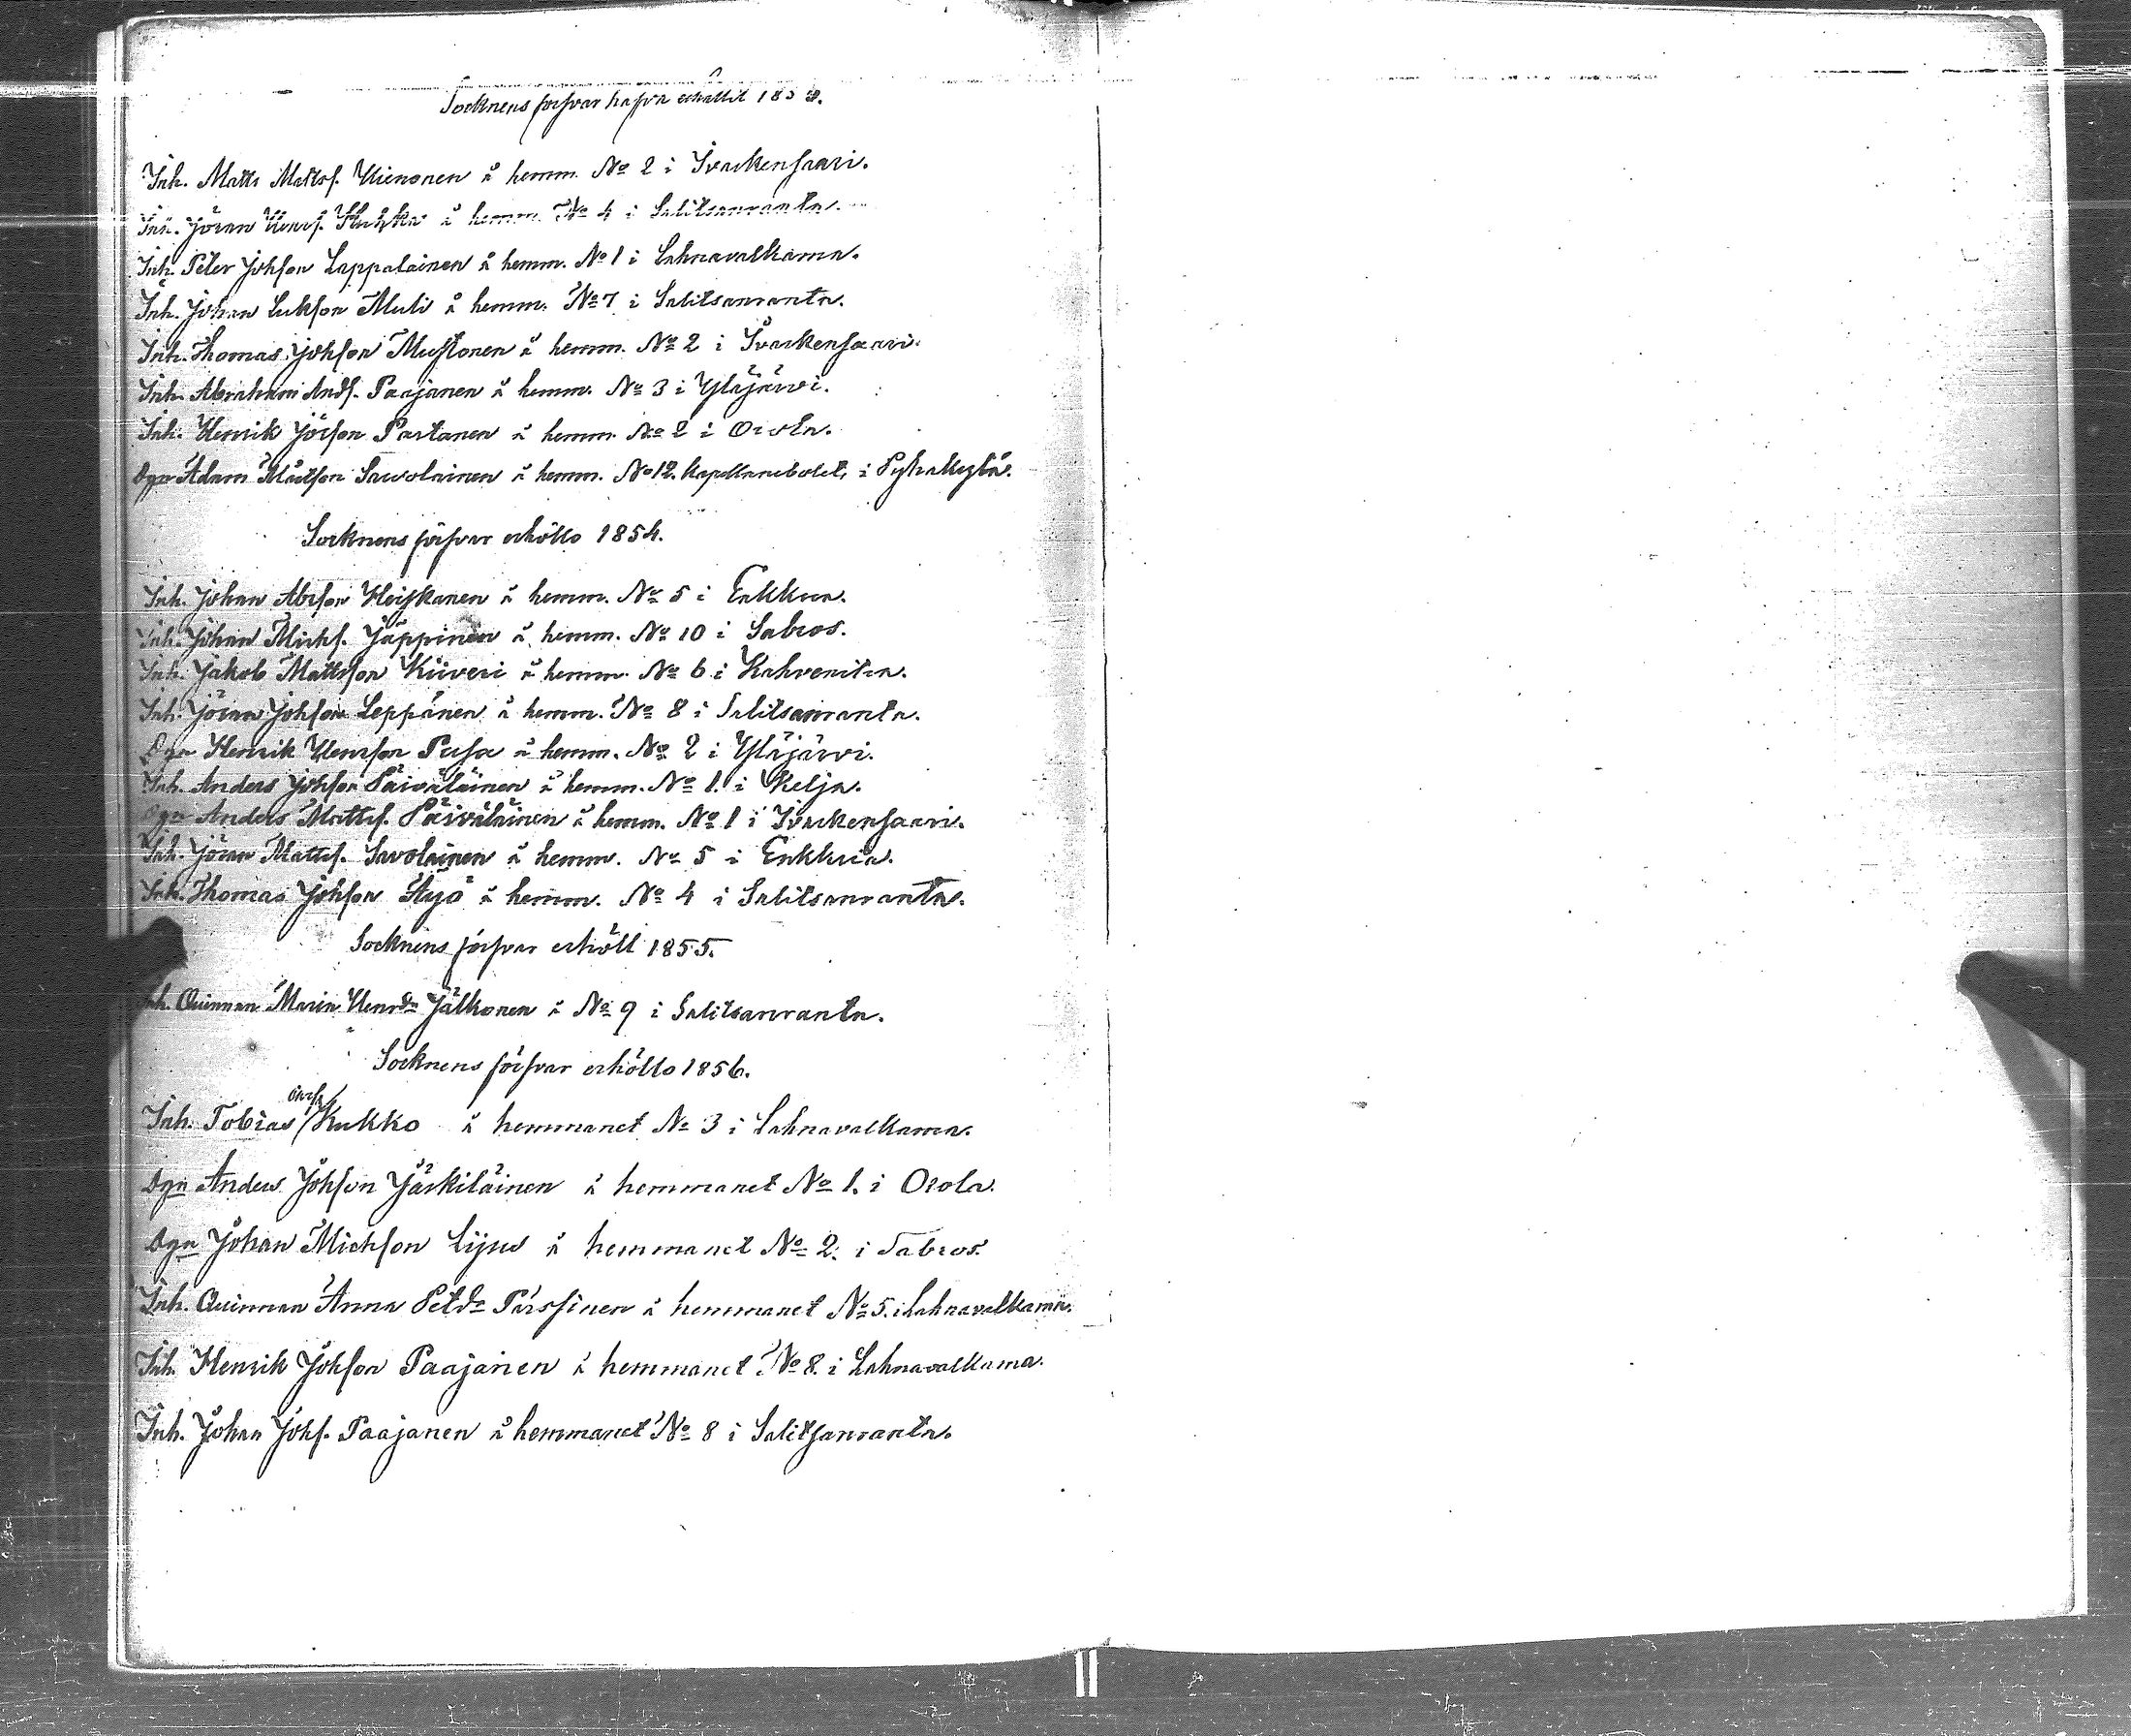 Socknens försvar hafva erhållit 1853.
Inh. Matts Mattsf. Hienonen å hemm. No 2 i Ivaskensaari.
Inh. Jöran Henrs. å hemm. No 4 i Salitsanranta.
Inh. Peter Johsson Lappalainen å hemm. No 1 i Lahnavalkama.
Inh. Johan Lukson Muli å hemm. No 7 i Salitsanranta.
Inh. Thomas Johsson Mustonen å hemm. No 2 i Ivaskensaari.
Inh. Abraham Ands. Paajanen å hemm. No 3 i Yläjärvi.
Inh. Henrik Jörson Partanen å hemm. No 2 i Orola.
Dgn Adam Matsson Sawolainen å hemm. No 12. Kapellansbolet, i Pyhäkylä.
Socknens försvar erhöllo 1854.
Inh. Johan Abrson Heiskanen å hemm. No 5 i Enkkua.
Inh. Johan Michs. Jäppinen å hemm. No 10 i Sabros.
Inh. Jakob Mattsson Kiiveri å hemm. No 6 i Kahvenitsa.
Inh. Jöran Johsson Leppänen å hemm. No 8 i Salitsanranta.
Dgn Henrik Henrson Pusa å hemm. No 2 i Yläjärvi.
Inh. Anders Johson Päiväläinen å hemm. No 1. i Kelja.
Dgn Anders Mattss. Päiväläinen å hemm. No 1 i Ivaskensaari.
Inh. Jöran Mattss. Savolainen å hemm. No 5 i Enkkua.
Inh. Thomas Johson Äyjö å hemm. No 4 i Salitsanranta.
Socknens försvar erhöll 1855.
Inh. Quinnan Maria Henrdr Jälkonen å No 9 i Salitsanranta.
Socknens försvar erhöllo 1856.
Inh. Tobias Kukko å hemmanet No 3 i Lahnavalkama.
Dgn Anders Johson Jäskiläinen å hemmanet No 1. i Orola.
Dgn Johan Michson Lijus å hemmanet No 2. i Sabros.
Inh. Quinnan Anna Petdr Pärssinen å hemmanet No 5. i Lahnavalkama.
Inh. Henrik Johson Paajanen å hemmanet No 8. i Lahnavalkama.
Inh. Johan Johs. Paajanen å hemmanet No 8 i Salitsanranta.